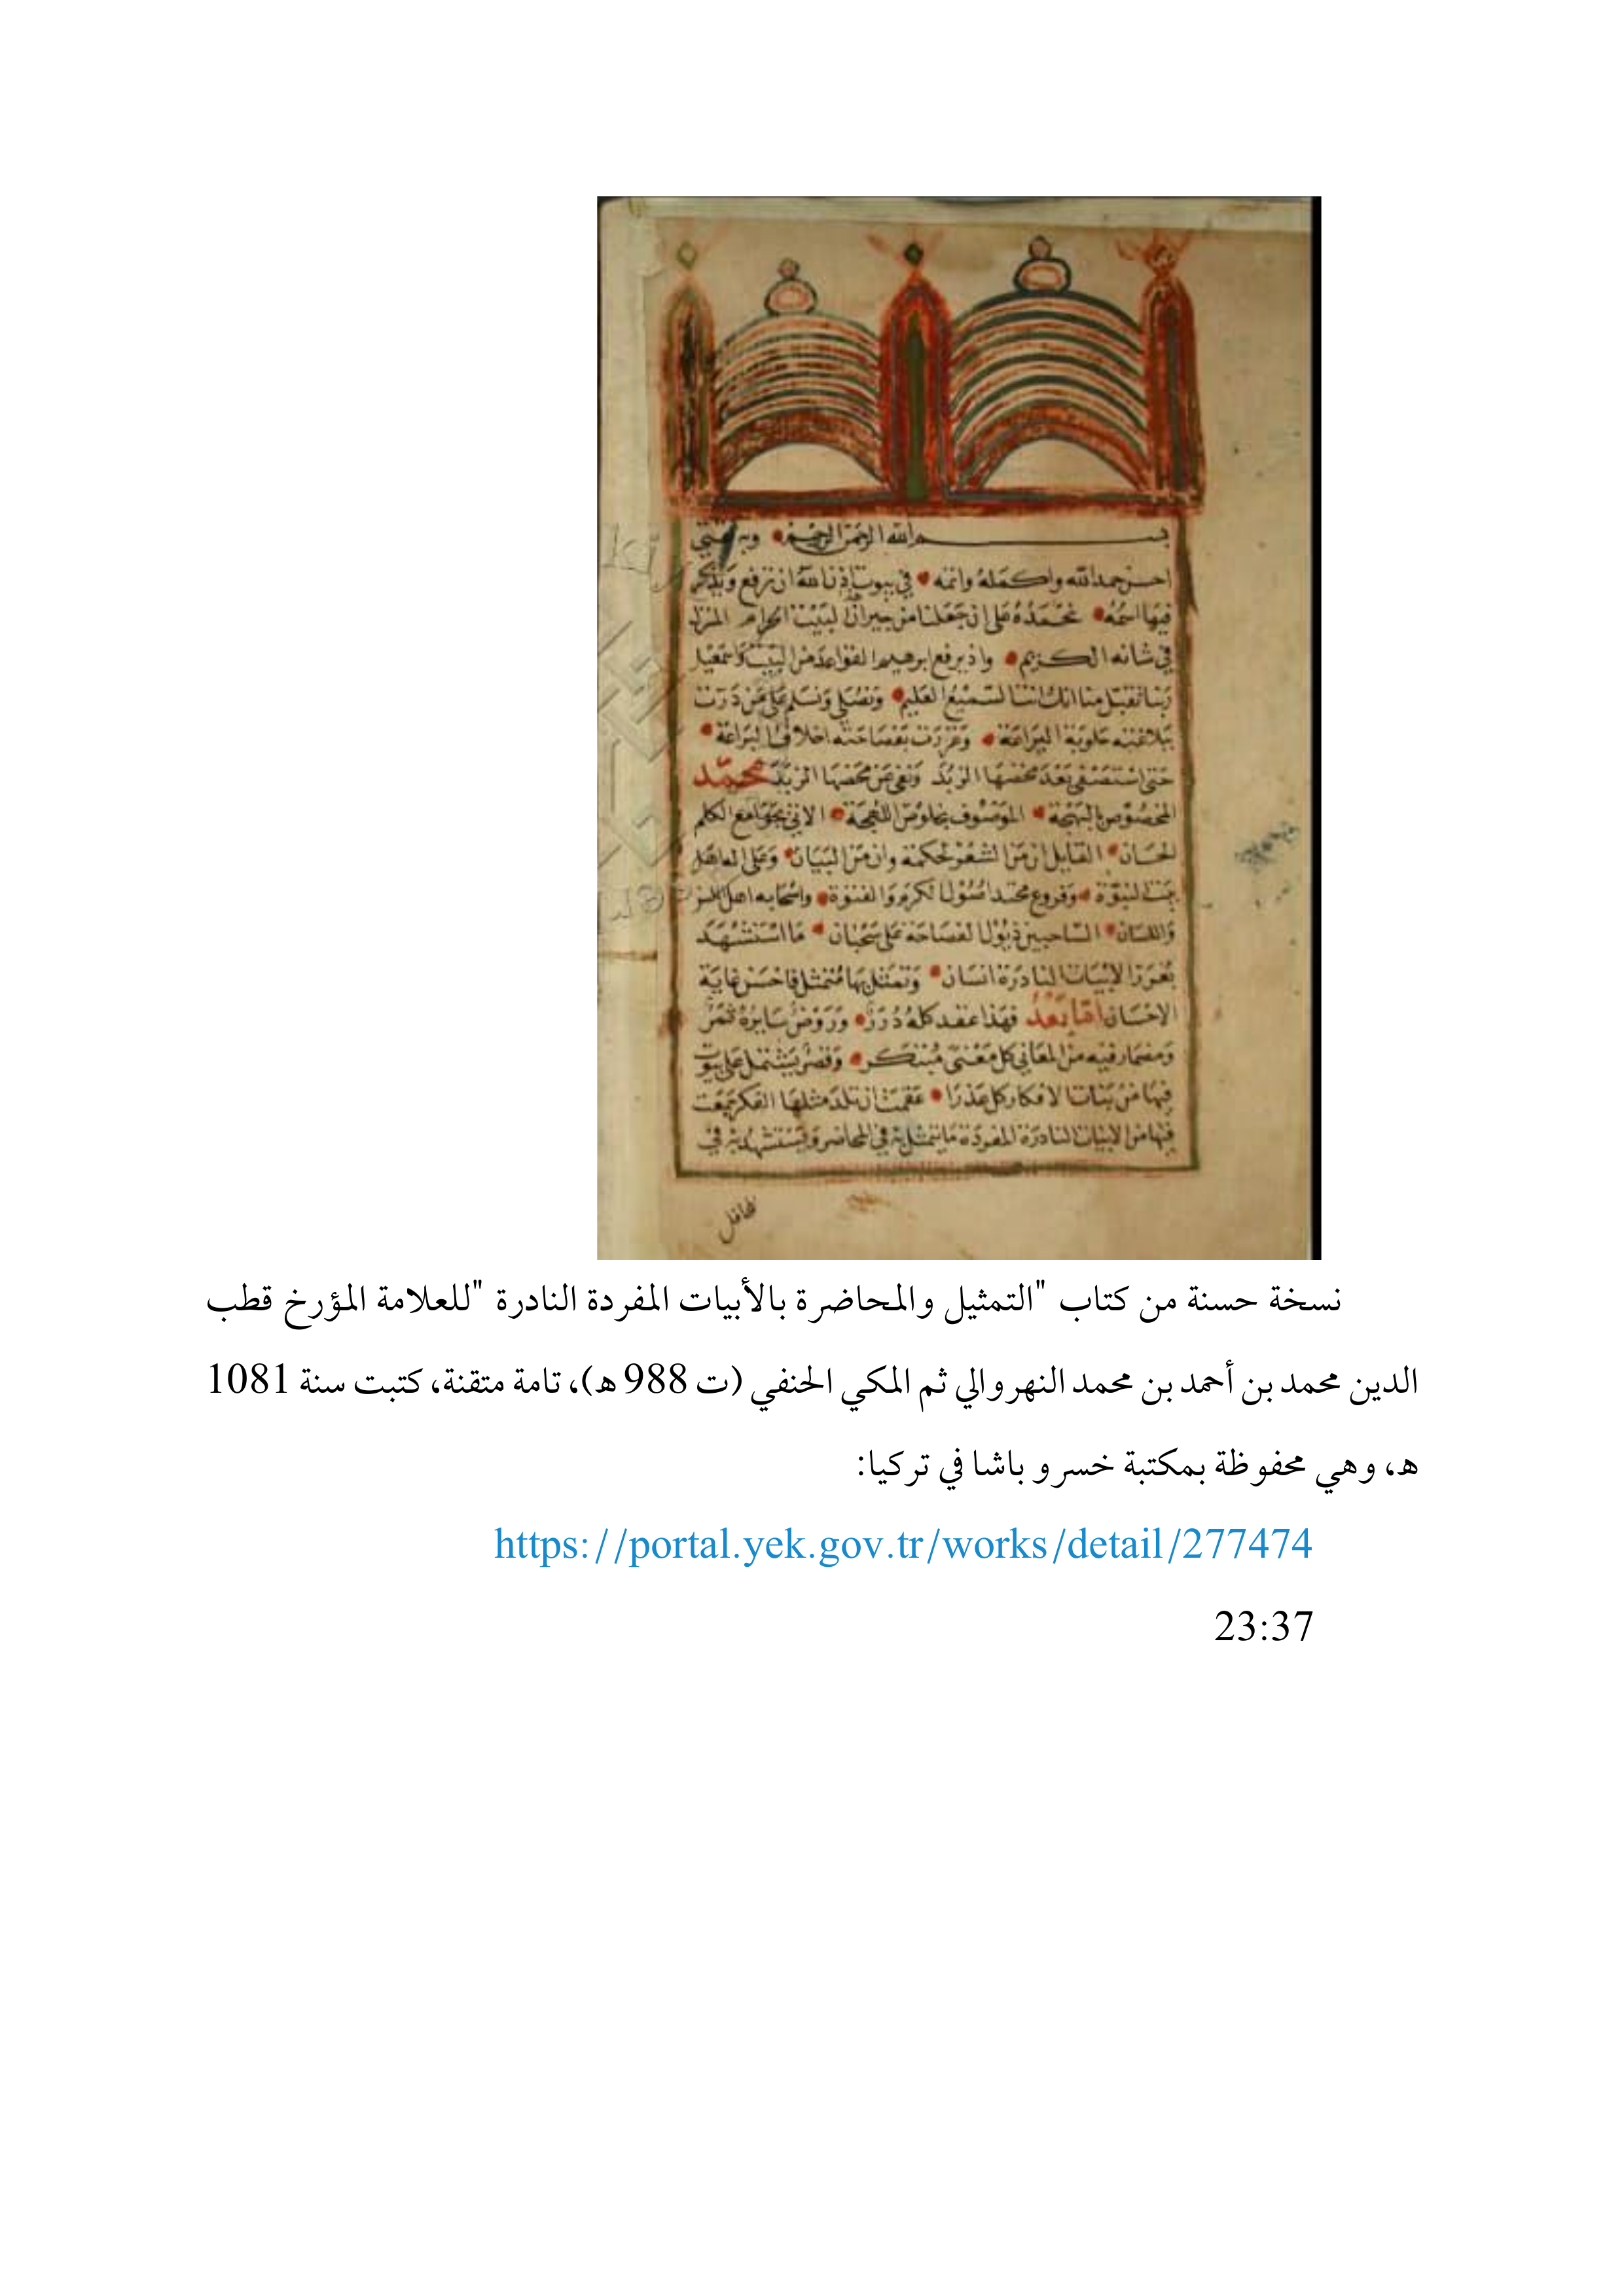 بسم الله الرحمن الرحيم • وبه ثقتي
احسن حمد الله واكمله واتمه • في بيوت اذن الله ان ترفع ويذكر
فيها اسمه • نحمده على ان جعلنا من جيران البيت الحرام المنزل
في شانه الكريم • واذ يرفع ابرهيم القواعد من البيت واسمعيل
ربنا تقبل منا انك انت السميع العليم • ونصلي ونسلم على من درت
ببلاغته حلوبة البراعة • وغزرت بفصاحته اخلاف البراعة •
حتى استصفى بعد مخضها الزبد ونفى عن محضها الزبد محمد
المخصوص بالبهجة • الموصوف بخلوص اللهجة • الاتي بجوامع الكلم
الحسان • القايل ان من الشعر لحكمة وان من البيان • وعلى اله اهل
بيت النبوة • وفروع محتد اصول الكرم والفتوة • واصحابه اهل
واللسان • الساحبين ذيول الفصاحة على سحبان • ما استشهد
بغرر الابيات النادرة انسان • وتمثل بها متمثل فاحسن غاية
الاحسان اما بعد فهذا عقد كله درر • وروض سايره ثمر
ومضمار فيه من المعاني كل معنى مبتكر • وقصر يشتمل على بيوت
فيها من بنات الافكار كل عذرا • عقمت ان تلد مثلها الفكر جمعت
فيها من الابيات النادرة المفردة ما يتمثل به في المحاضر ويستشهد به في
نسخة حسنة من كتاب "التمثيل والمحاضرة بالأبيات المفردة النادرة "للعلامة المؤرخ قطب
الدين محمد بن أحمد بن محمد النهروالي ثم المكي الحنفي (ت 988 ه)، تامة متقنة، كتبت سنة 1081
ه، وهي محفوظة بمكتبة خسرو باشا في تركيا:
https://portal.yek.gov.tr/works/detail/277474
23:37